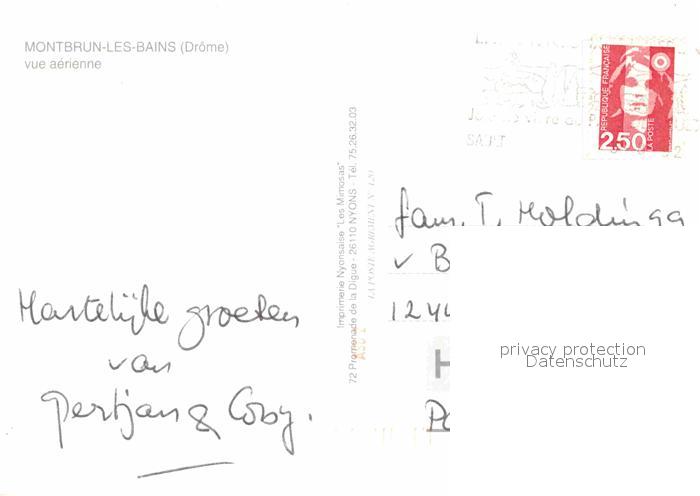 MONTBRUN-LES-BAINS (Drôme)
vue aérienne
REPUBLIQUE FRANÇAISE
LA POSTE
2,50
Imprimerie Nyonsaise "Les Mimosas"
72 Promenade de la Digue - 26110 NYONS - Tél. 75.26.32.03
LA POSTE AGREMENT N° 120
fam. T. Moldinga
v B
1244
H
Hartelijke groeten
van
Gertjan & Coby.
privacy protection
Datenschutz